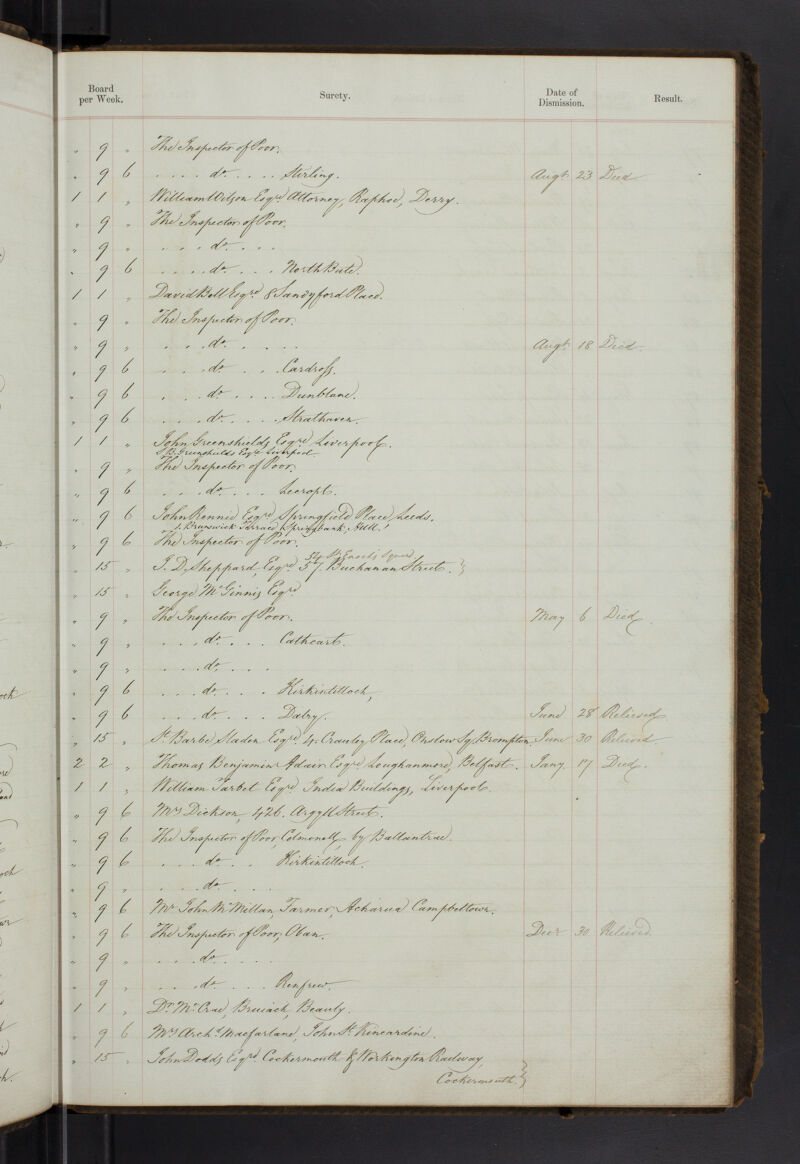 Board per Week. Surety. Date of Dismission. Result.
" 9 " The Inspector of Poor.
" 9 6 . . . . do . . . . Stirling. Augt 23 Died
1 1 " William Wilson Esqre Attorney, Raphoe, Derry.
" 9 " The Inspector of Poor.
" 9 " . . . do . . . .
" 9 6 . . . . do . . . North Bute.
1 1 " David Bell Esqre 8 Sandyford Place.
" 9 " The Inspector of Poor.
" 9 " . . . do . . . . . Augt 18 Died
" 9 6 . . . do . . . Cardross.
" 9 6 . . . do . . . . Dunblane.
" 9 6 . . . do . . . . Strathaven.
1 1 " John Greenshields Esqre Liverpool.
S. B. Greenshields Esqre Liverpool
" 9 " The Inspector of Poor.
" 9 6 . . . do . . . . Lecropt.
" 9 6 John Rennie Esqre Springfield Place, Leeds.
1. Brunswick Terrace, Springbank, Hull.
" 9 6 The Inspector of Poor.
54 St Enoch's Square
" 15 " J. D. Sheppard, Esqre 57 Buchanan Street. }
" 15 " George McGinnis Esqre
" 9 " The Inspector of Poor. May 6 Died
" 9 " . . . do . . . . Cathcart.
" 9 " . . . do . . .
" 9 6 . . . do . . . . Kirkintilloch,
" 9 6 . . . do . . . . Dalry. June 28 Relieved
" 15 " St Barbe Sladen Esqre, 4. Crawley Place, Onslow Sq. Brompton June 30 Relieved
2 2 " Thomas Benjamin Adair Esqre Loughanmore, Belfast. Jany. 17 Died.
1 1 " William Tarbet Esqre India Buildings, Liverpool.
" 9 6 Mrs Dickson, 426. Argyll Street.
" 9 6 The Inspector of Poor, Colmonell, by Ballantrae.
" 9 6 . . . do . . Kirkintilloch.
" 9 " . . . do . . . .
" 9 6 Mr John McMillan, Farmer, Campbeltown.
" 9 6 The Inspector of Poor, Oban. Decr 30 Relieved
" 9 " . . . do . . . . .
" 9 " . . . do . . . Renfrew.
1 1 " Dr McCrae, Beauly.
" 9 6 Mrs Archd Macfarlane, John St Kincardine.
" 15 " John Dodds Esqre Cockermouth & Workington Railway,
Cockermouth. }